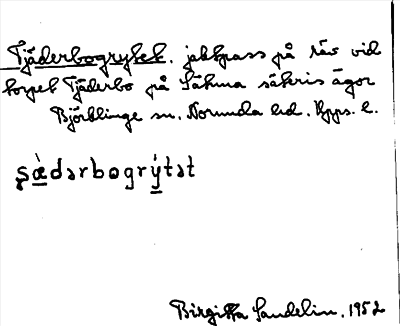 Tjäderbogrytet, jaktpass på räv vid
torpet Tjäderbo på Sätuna säteris ägor
Björklinge sn. Norunda hd. Upps. l.
şæ̀dərbogrýtət
Birgitta Sandelin. 1952